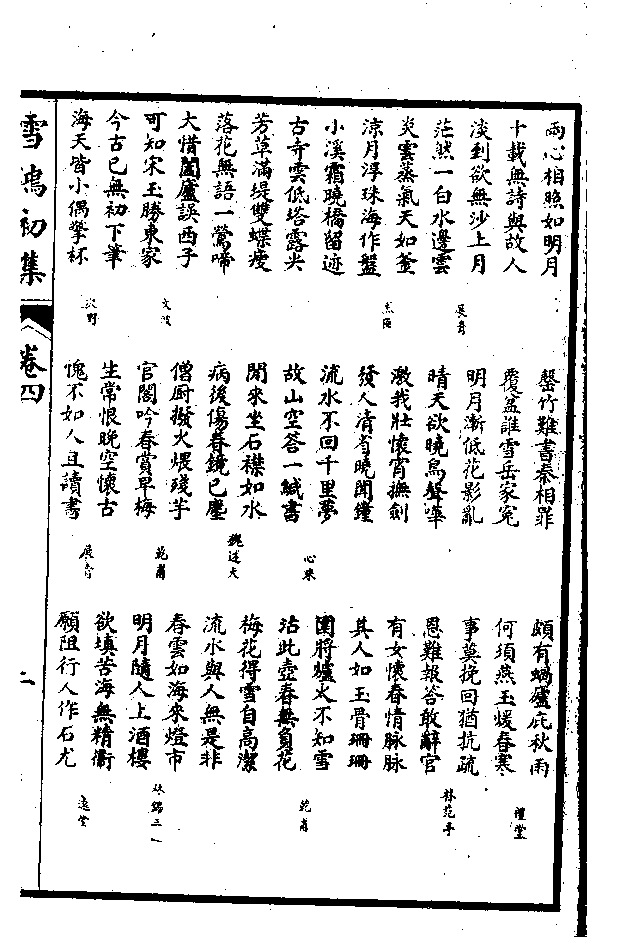 兩心相照如明月
十載無詩與故人
淡到欲無沙上月
茫然一白水邊雲
炎雲蒸氣天如釜
涼月浮珠海作盤
小溪霜曉橋留迹
古寺雲低塔露尖
芳草滿堤雙蝶瘦
落花無語一鶯啼
大惜闔廬誤西子
可知宋玉勝東家
文波
今古已無初下筆
海天皆小偶擎杯
罄竹難書秦相罪
覆盆誰雪岳家冤
明月漸低花影亂
晴天欲曉鳥聲嘩
激我壯懷宵撫劍
發人清省曉聞鐘
流水不回千里夢
故山空荅一緘書
心來
閒來坐石襟如水
病後傷春鏡已塵
魏道大
僧厨撥火煨殘芋
官閣吟春賞早梅
乾甫
生常恨晚空懷古
愧不如人且讀書
頗有蝸廬庇秋雨
何須燕玉煖春寒
禮堂
事莫挽回猶抗疏
恩難報答敢辭官
林范亭
有女懷春情脉脉
其人如玉骨珊珊
圍將爐火不知雪
沽此壺春無負花
乾甫
梅花得雪自高潔
流水與人無是非
春雲如海來燈市
明月隨人上酒樓
林錫三
欲填苦海無精衛
願阻行人作石尤
遠堂
雪鴻初集
卷四
二